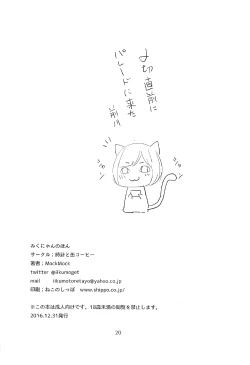 〆切直前に
パレードに来た
前川
みくにゃんのほん
サークル；時計と缶コーヒー
著者；MockMock
twitter @iikumoget
mail iikumotoretayo@yahoo.co.jp
印刷；ねこのしっぽ www.shippo.co.jp/
※この本は成人向けです。18歳未満の閲覧を禁止します。
2016.12.31発行
20